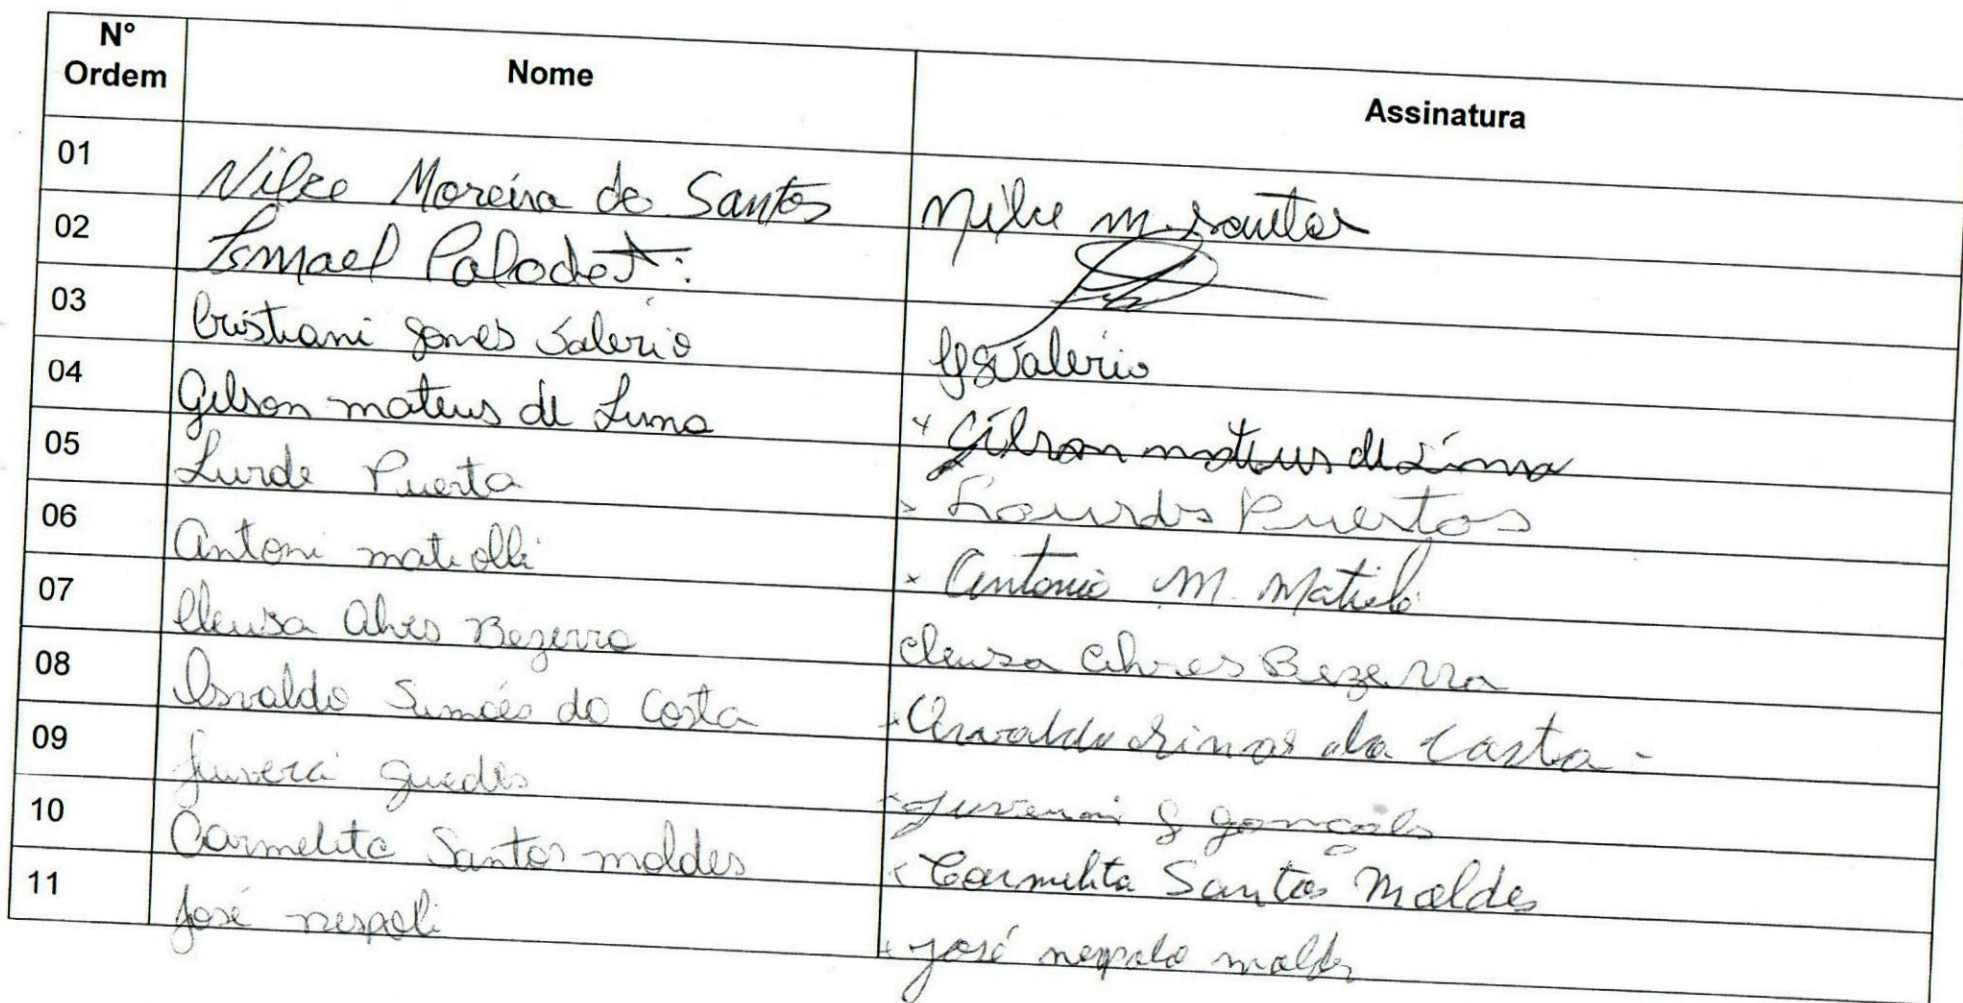 N° Ordem Nome Assinatura
01 Nilce Moreira do Santos Nilce M. Santos
02 Ismael Polodet
03 Cristiani Gomes Valerio CGValerio
04 Gilson mateus de Lima Gilson mateus de Lima
05 Lurde Puerta Lourdes Puertas
06 Antoni matiolli Antonio M. Matiolo
07 Cleusa Alves Bezerra Cleusa Alves Bezerra
08 Osvaldo Simões da Costa Osvaldo Simos da Costa
09 Juverci guedes g gonçals
10 Carmelita Santos moldes Carmelita Santos Moldes
11 José nespoli José nespolo molds